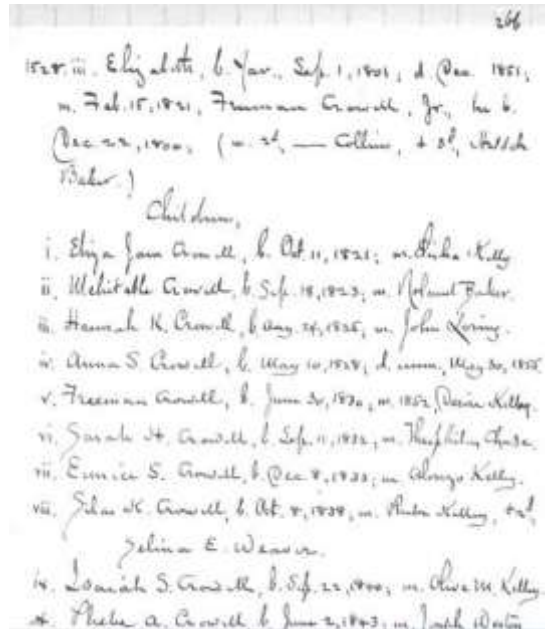 266
1528. iii. Elizabeth, b. Yar., Sep. 1, 1801; d. Dec. 1851;
m. Feb. 15, 1821, Freeman Crowell, Jr., he b.
Dec 22, 1800, (m. 2d, — Collins, + 3d,
Baker.)
Children,
i. Eliza Jane Crowell, b. Oct. 11, 1821; m. Kelly
ii. Mehitable Crowell, b. Sep. 18, 1823; m. Baker.
iii. Hannah K. Crowell, b. Aug. 24, 1825, m. John Loring.
iv. Anna S. Crowell, b. May 10, 1828; d. unm., May 30, 1855
v. Freeman Crowell, b. June 30, 1830; m. 1852, Kelley.
vi. Sarah H. Crowell, b. Sep. 11, 1832, m. Theophilus Chase.
vii. Eunice S. Crowell, b. Dec 8, 1833; m. Alonzo Kelley.
viii. Silas K. Crowell, b. Oct. 8, 1838, m. Kelley, + 2d,
Selina E. Weaver.
ix. Isaiah S. Crowell, b. Sep. 22, 1840; m. Olive M. Kelley
x. Phebe A. Crowell b. June 2, 1843; m. Joseph